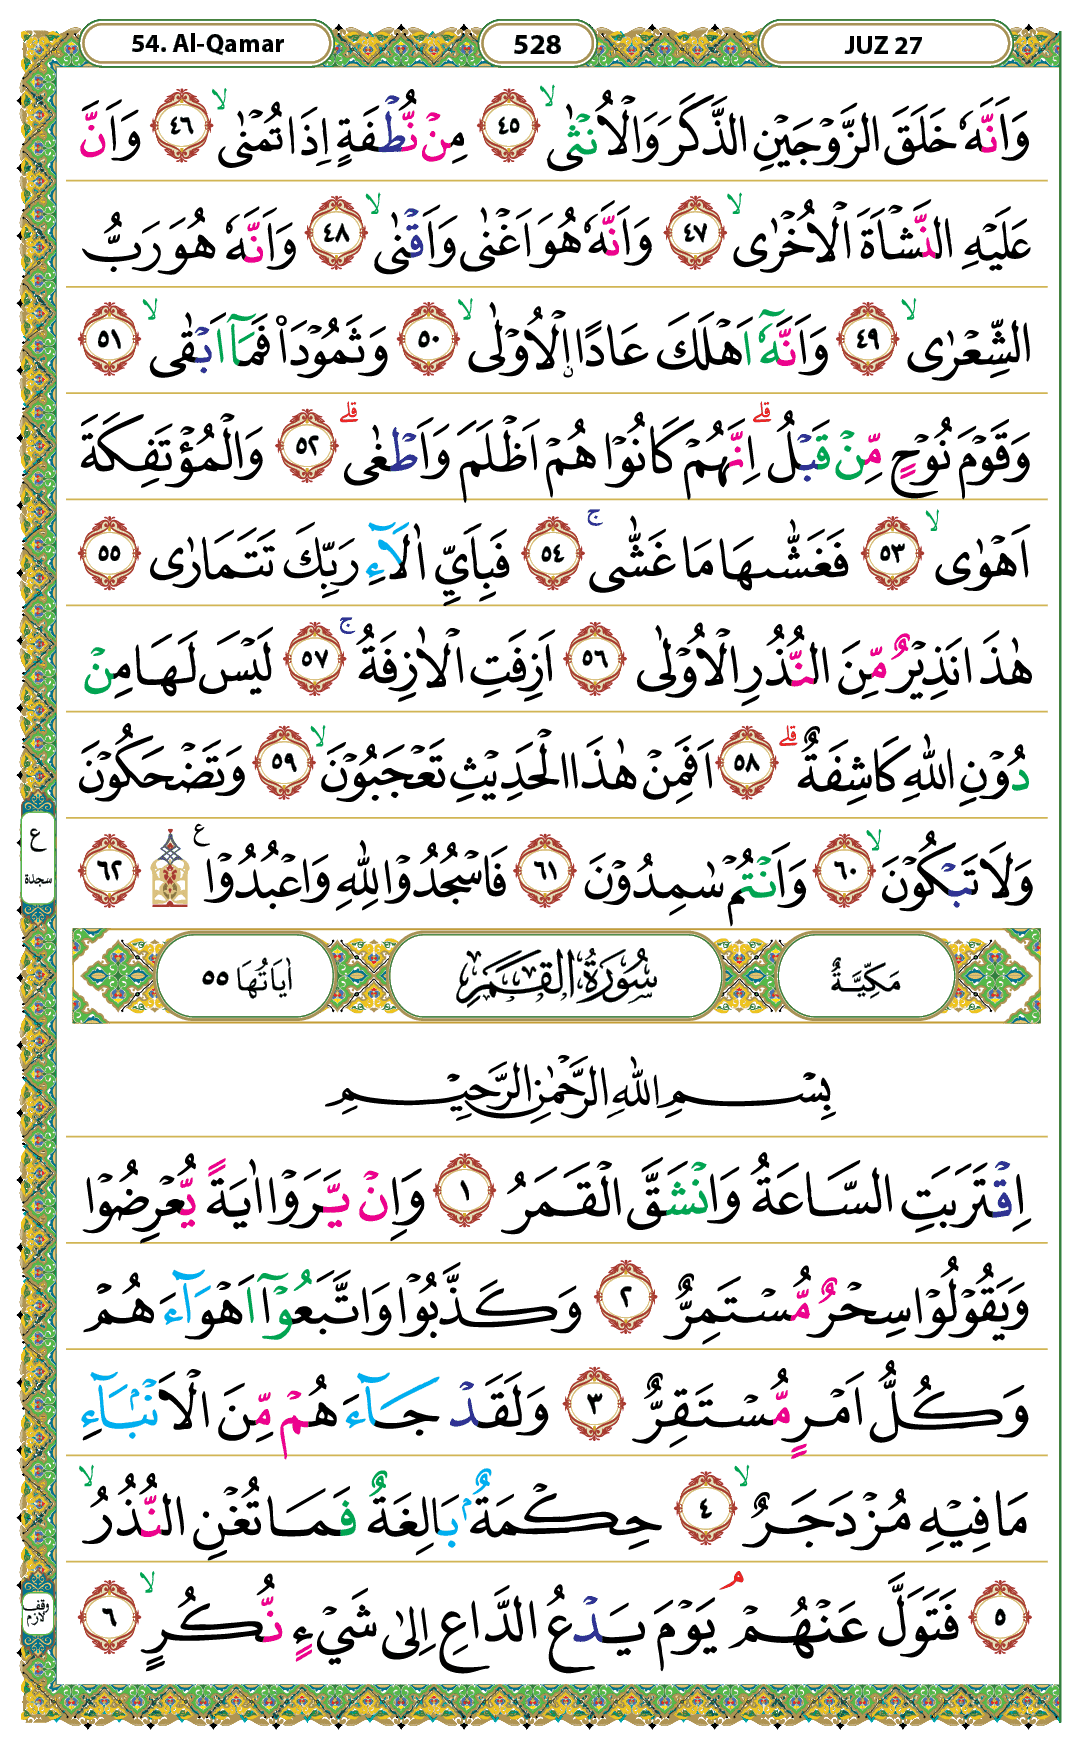 54. Al-Qamar 528 JUZ 27
وَاَنَّهٗ خَلَقَ الزَّوْجَيْنِ الذَّكَرَ وَالْاُنْثٰى ۙ ٤٥ مِنْ نُّطْفَةٍ اِذَا تُمْنٰى ۙ ٤٦ وَاَنَّ
عَلَيْهِ النَّشْاَةَ الْاُخْرٰى ۙ ٤٧ وَاَنَّهٗ هُوَ اَغْنٰى وَاَقْنٰى ۙ ٤٨ وَاَنَّهٗ هُوَ رَبُّ
الشِّعْرٰى ۙ ٤٩ وَاَنَّهٗٓ اَهْلَكَ عَادًا ۨالْاُوْلٰى ۙ ٥٠ وَثَمُوْدَا۟ فَمَآ اَبْقٰى ۙ ٥١
وَقَوْمَ نُوْحٍ مِّنْ قَبْلُ ۗ اِنَّهُمْ كَانُوْا هُمْ اَظْلَمَ وَاَطْغٰى ۗ ٥٢ وَالْمُؤْتَفِكَةَ
اَهْوٰى ۙ ٥٣ فَغَشّٰىهَا مَا غَشّٰى ۚ ٥٤ فَبِاَيِّ اٰلَاۤءِ رَبِّكَ تَتَمَارٰى ٥٥
هٰذَا نَذِيْرٌ مِّنَ النُّذُرِ الْاُوْلٰى ٥٦ اَزِفَتِ الْاٰزِفَةُ ۚ ٥٧ لَيْسَ لَهَا مِنْ
دُوْنِ اللّٰهِ كَاشِفَةٌ ۗ ٥٨ اَفَمِنْ هٰذَا الْحَدِيْثِ تَعْجَبُوْنَ ۙ ٥٩ وَتَضْحَكُوْنَ
وَلَا تَبْكُوْنَ ۙ ٦٠ وَاَنْتُمْ سٰمِدُوْنَ ٦١ فَاسْجُدُوْا لِلّٰهِ وَاعْبُدُوْا ࣖ ٦٢
ع
سجدة
مَكِّيَّةٌ سُوْرَةُ الْقَمَرِ اٰيَاتُهَا ٥٥
بِسْمِ اللّٰهِ الرَّحْمٰنِ الرَّحِيْمِ
اِقْتَرَبَتِ السَّاعَةُ وَانْشَقَّ الْقَمَرُ ١ وَاِنْ يَّرَوْا اٰيَةً يُّعْرِضُوْا
وَيَقُوْلُوْا سِحْرٌ مُّسْتَمِرٌّ ٢ وَكَذَّبُوْا وَاتَّبَعُوْٓا اَهْوَاۤءَهُمْ
وَكُلُّ اَمْرٍ مُّسْتَقِرٌّ ٣ وَلَقَدْ جَاۤءَهُمْ مِّنَ الْاَنْۢبَاۤءِ
مَا فِيْهِ مُزْدَجَرٌ ۙ ٤ حِكْمَةٌ ۢ بَالِغَةٌ فَمَا تُغْنِ النُّذُرُ ۙ
٥ فَتَوَلَّ عَنْهُمْ ۘ يَوْمَ يَدْعُ الدَّاعِ اِلٰى شَيْءٍ نُّكُرٍ ۙ ٦
وقف لازم